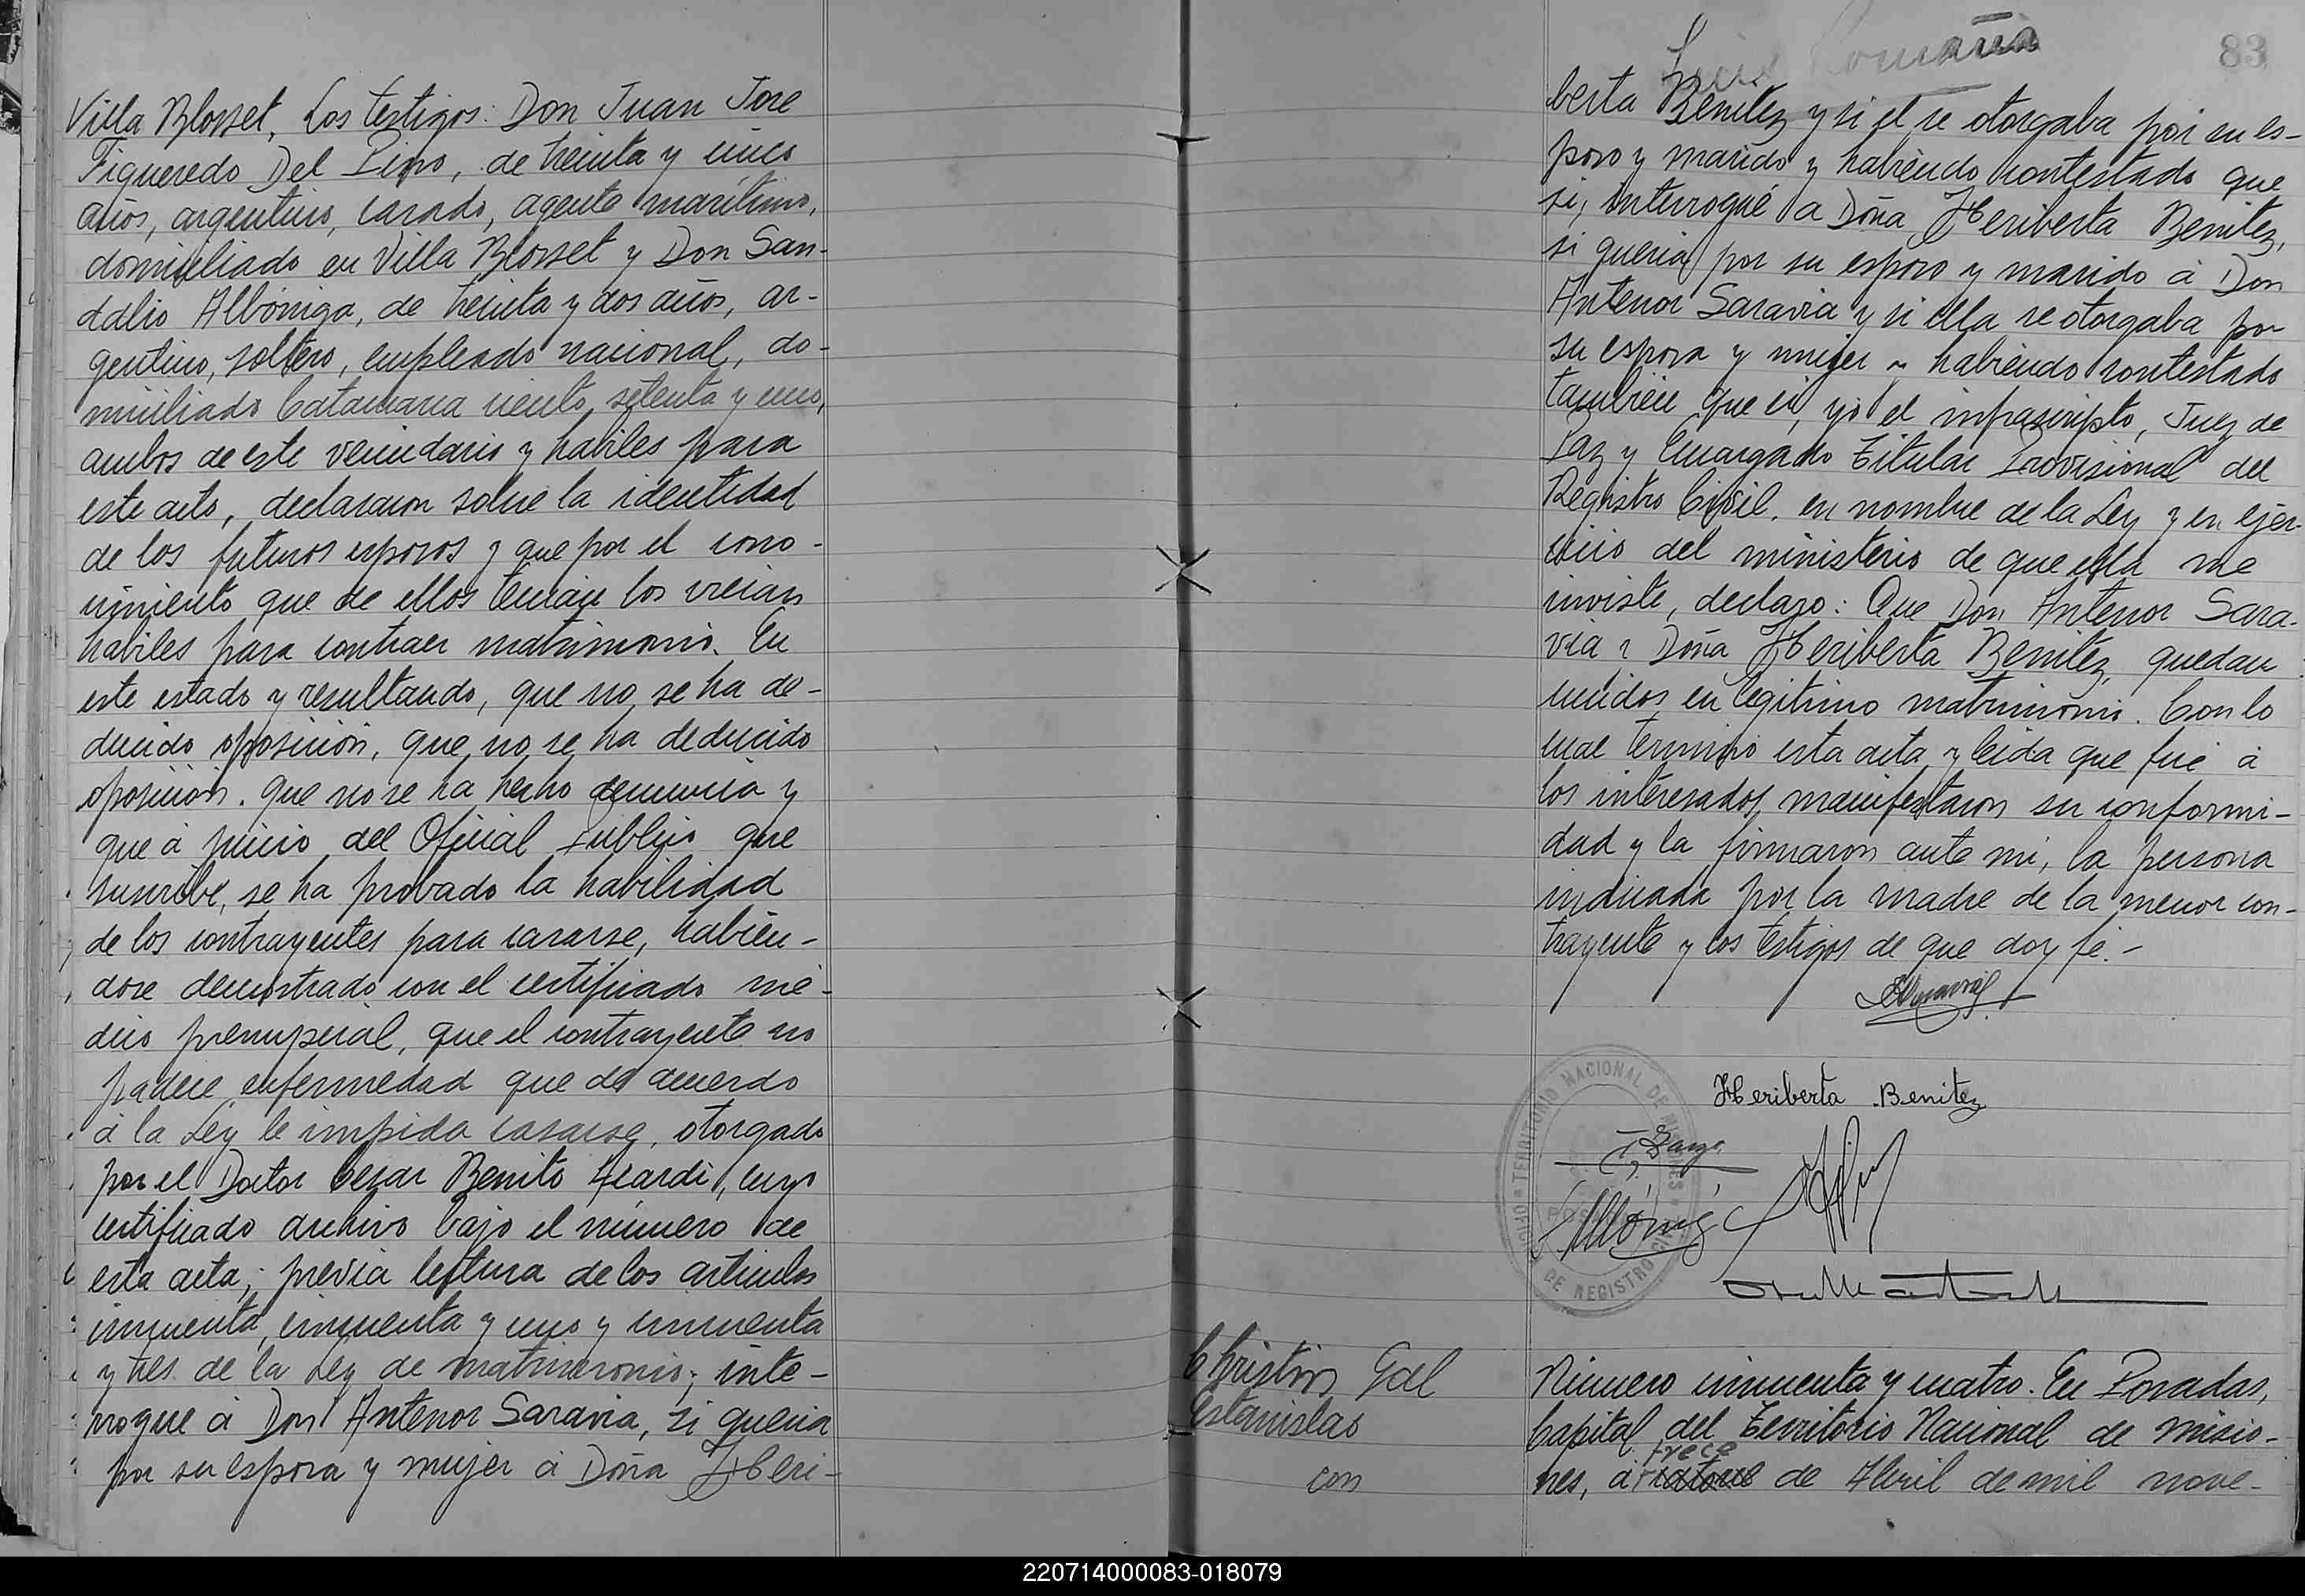 Villa Blosset. Los testigos: Don Juan Jose
Figueredo Del Pino, de treinta y cinco
años, argentino, casado, agente marítimo,
domiciliado en Villa Blosset y Don San-
dalio Albóniga, de treinta y dos años, ar-
gentino, soltero, empleado nacional, do-
miciliado Catamarca ciento setenta y uno,
ambos de este vecindario y habiles para
este acto, declararon sobre la identidad
de los futuros esposos y que por el cono-
cimiento que de ellos tenían los creían
habiles para contraer matrimonio. En
este estado y resultando, que no se ha de-
ducido oposición, que no se ha deducido
oposición. que no se ha hecho denuncia y
que á juicio del Oficial Publico que
suscribe, se ha probado la habilidad
de los contrayentes para casarse, habién-
dose demostrado con el certificado mé-
dico prenupcial, que el contrayente no
padece enfermedad que de acuerdo
á la Ley le impida casarse, otorgado
por el Doctor Cesar Benito cuyo
certificado archivo bajo el número de
esta acta; previa lectura de los artículos
cincuenta, cincuenta y uno y cincuenta
y tres de la Ley de matrimonio; inte-
rrogue á Don Antenor Saravia, si quería
por su esposa y mujer á Doña Heri-
83
berta Benitez y si el se otorgaba por su es-
poso y marido y habiendo contestado que
si, interrogué a Doña Heriberta Benitez,
si quería por su esposo y marido á Don
Antenor Saravia y si ella se otorgaba por
su esposa y mujer y habiendo contestado
tambien que si, yo el infrascripto, Juez de
Paz y Encargado Titular Provisional del
Registro Civil, en nombre de la Ley y en ejer-
cicio del ministerio de que ella me
inviste, declaro: Que Don Antenor Sara-
via y Doña Heriberta Benitez, quedan
unidos en legitimo matrimonio. Con lo
cual terminó esta acta y leída que fué á
los interesados, manifestaron su conformi-
dad y la firmaron ante mi, la persona
indicada por la madre de la menor con-
trayente y los testigos de que doy fé.-
Heriberta Benitez
TERRITORIO NACIONAL DE MISIONES
POSADAS
DE REGISTRO CIVIL
Christin Gal
Estanislao
con
Número cincuenta y cuatro. En Posadas,
Capital del Territorio Nacional de Misio-
trece
nes, á catorce de Abril de mil nove-
220714000083-018079